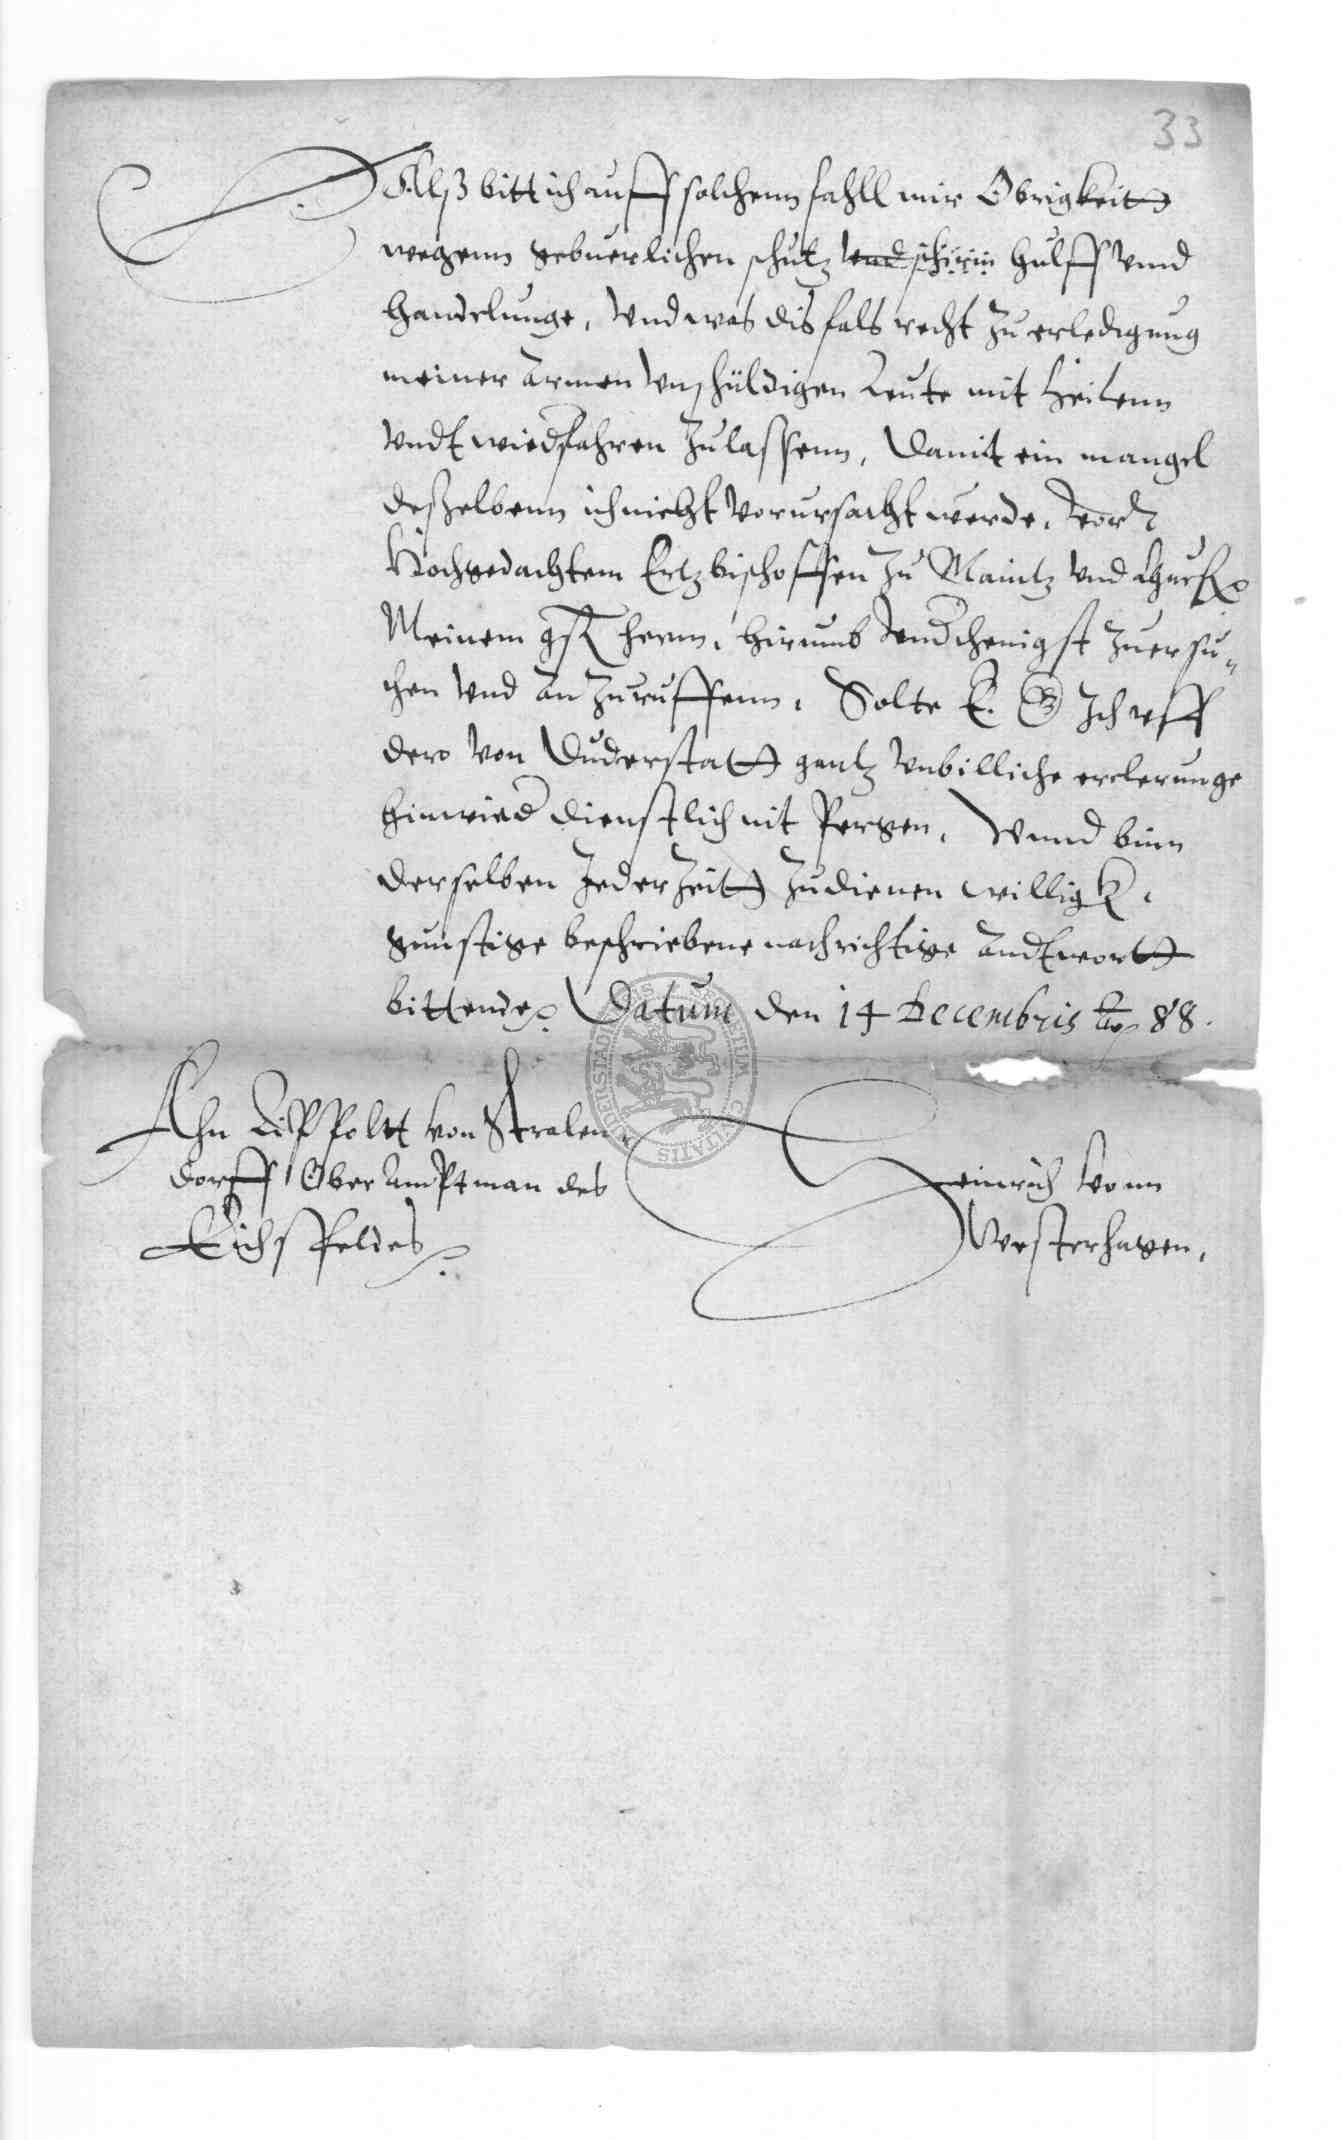 33
Alß bitt ich auff solchenn fahll mir Obrigkeit
wegenn gebuerlichen schutz und schirm hulff unnd
handelunge, und was dis fals recht zu erledigung
meiner armen unschüldigen Leute mit heilenn
undt wiedfahren zulassenn, Damit ein mangel
deßelbenn ich nicht vorursacht werde,
Hochgedachtem Ertzbischoffen zu Maintz und Churf
Meinem gst hern, hirumb zuersu-
chen und an zuruffenn, Solte E. G Ich uff
dero von Duderstat gantz unbilliche erclerunge
hinwied dienstlich nit Pergen, Unnd binn
derselben Jederzeit zudienen willigk,
gunstige beschriebene nachrichtige andtwort
bittende Datum den 14 Decembris 88.
Ahn Lippoltt von Stralen
dorff Ober Amptman des
Eichsfeldes
Heinrich vonn
Westerhagen,